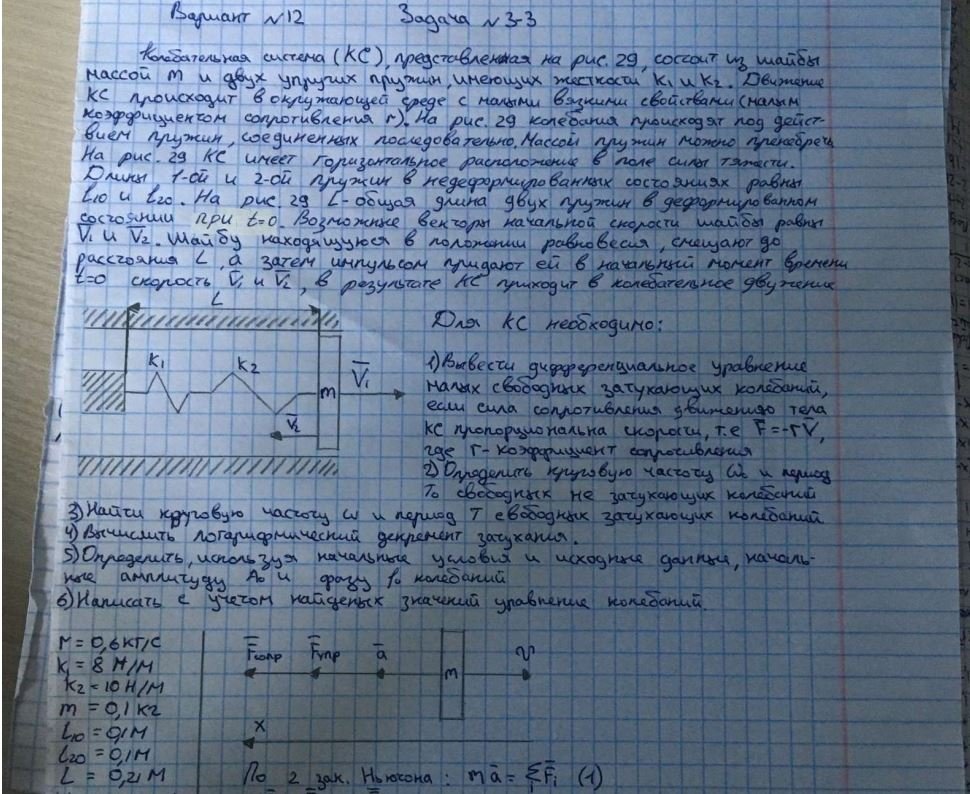 Вариант №12 Задача №3-3
Колебательная система (КС), представленная на рис. 29, состоит из шайбы
массой m и двух упругих пружин, имеющих жесткости K₁ и K₂. Движение
КС происходит в окружающей среде с малыми вязкими свойствами (малым
коэффициентом сопротивления r). На рис. 29 колебания происходят под дейст-
вием пружин, соединенных последовательно. Массой пружин можно пренебречь
На рис. 29 КС имеет горизонтальное расположение в поле силы тяжести.
Длины 1-ой и 2-ой пружин в недеформированных состояниях равны
l₁₀ и l₂₀. На рис. 29 L - общая длина двух пружин в деформированном
состоянии при t=0. Возможные векторы начальной скорости шайбы равны
V̄₁ и V̄₂. Шайбу находящуюся в положении равновесия, смещают до
расстояния L, а затем импульсом придают ей в начальный момент времени
t=0 скорость V̄₁ и V̄₂, в результате КС приходит в колебательное движение
L
Для КС необходимо:
K₁ K₂ V̄₁
m
V̄₂
1) Вывести дифференциальное уравнение
малых свободных затухающих колебаний,
если сила сопротивления движению тела
КС пропорциональна скорости, т.е F̄=-rV̄,
где r - коэффициент сопротивления
2) Определить круговую частоту ω₀ и период
T₀ свободных не затухающих колебаний
3) Найти круговую частоту ω и период T свободных затухающих колебаний
4) Вычислить логарифмический декремент затухания.
5) Определить, используя начальные условия и исходные данные, началь-
ные амплитуду A₀ и фазу φ₀ колебаний
6) Написать с учетом найденых значений уравнение колебаний.
r = 0,6 кг/с
k₁ = 8 Н/м
k₂ = 10 Н/м
m = 0,1 кг
l₁₀ = 0,1 м
l₂₀ = 0,1 м
L = 0,21 м
F̄сопр F̄упр ā m v̄
x
По 2 зак. Ньютона: mā = ΣF̄ᵢ (1)